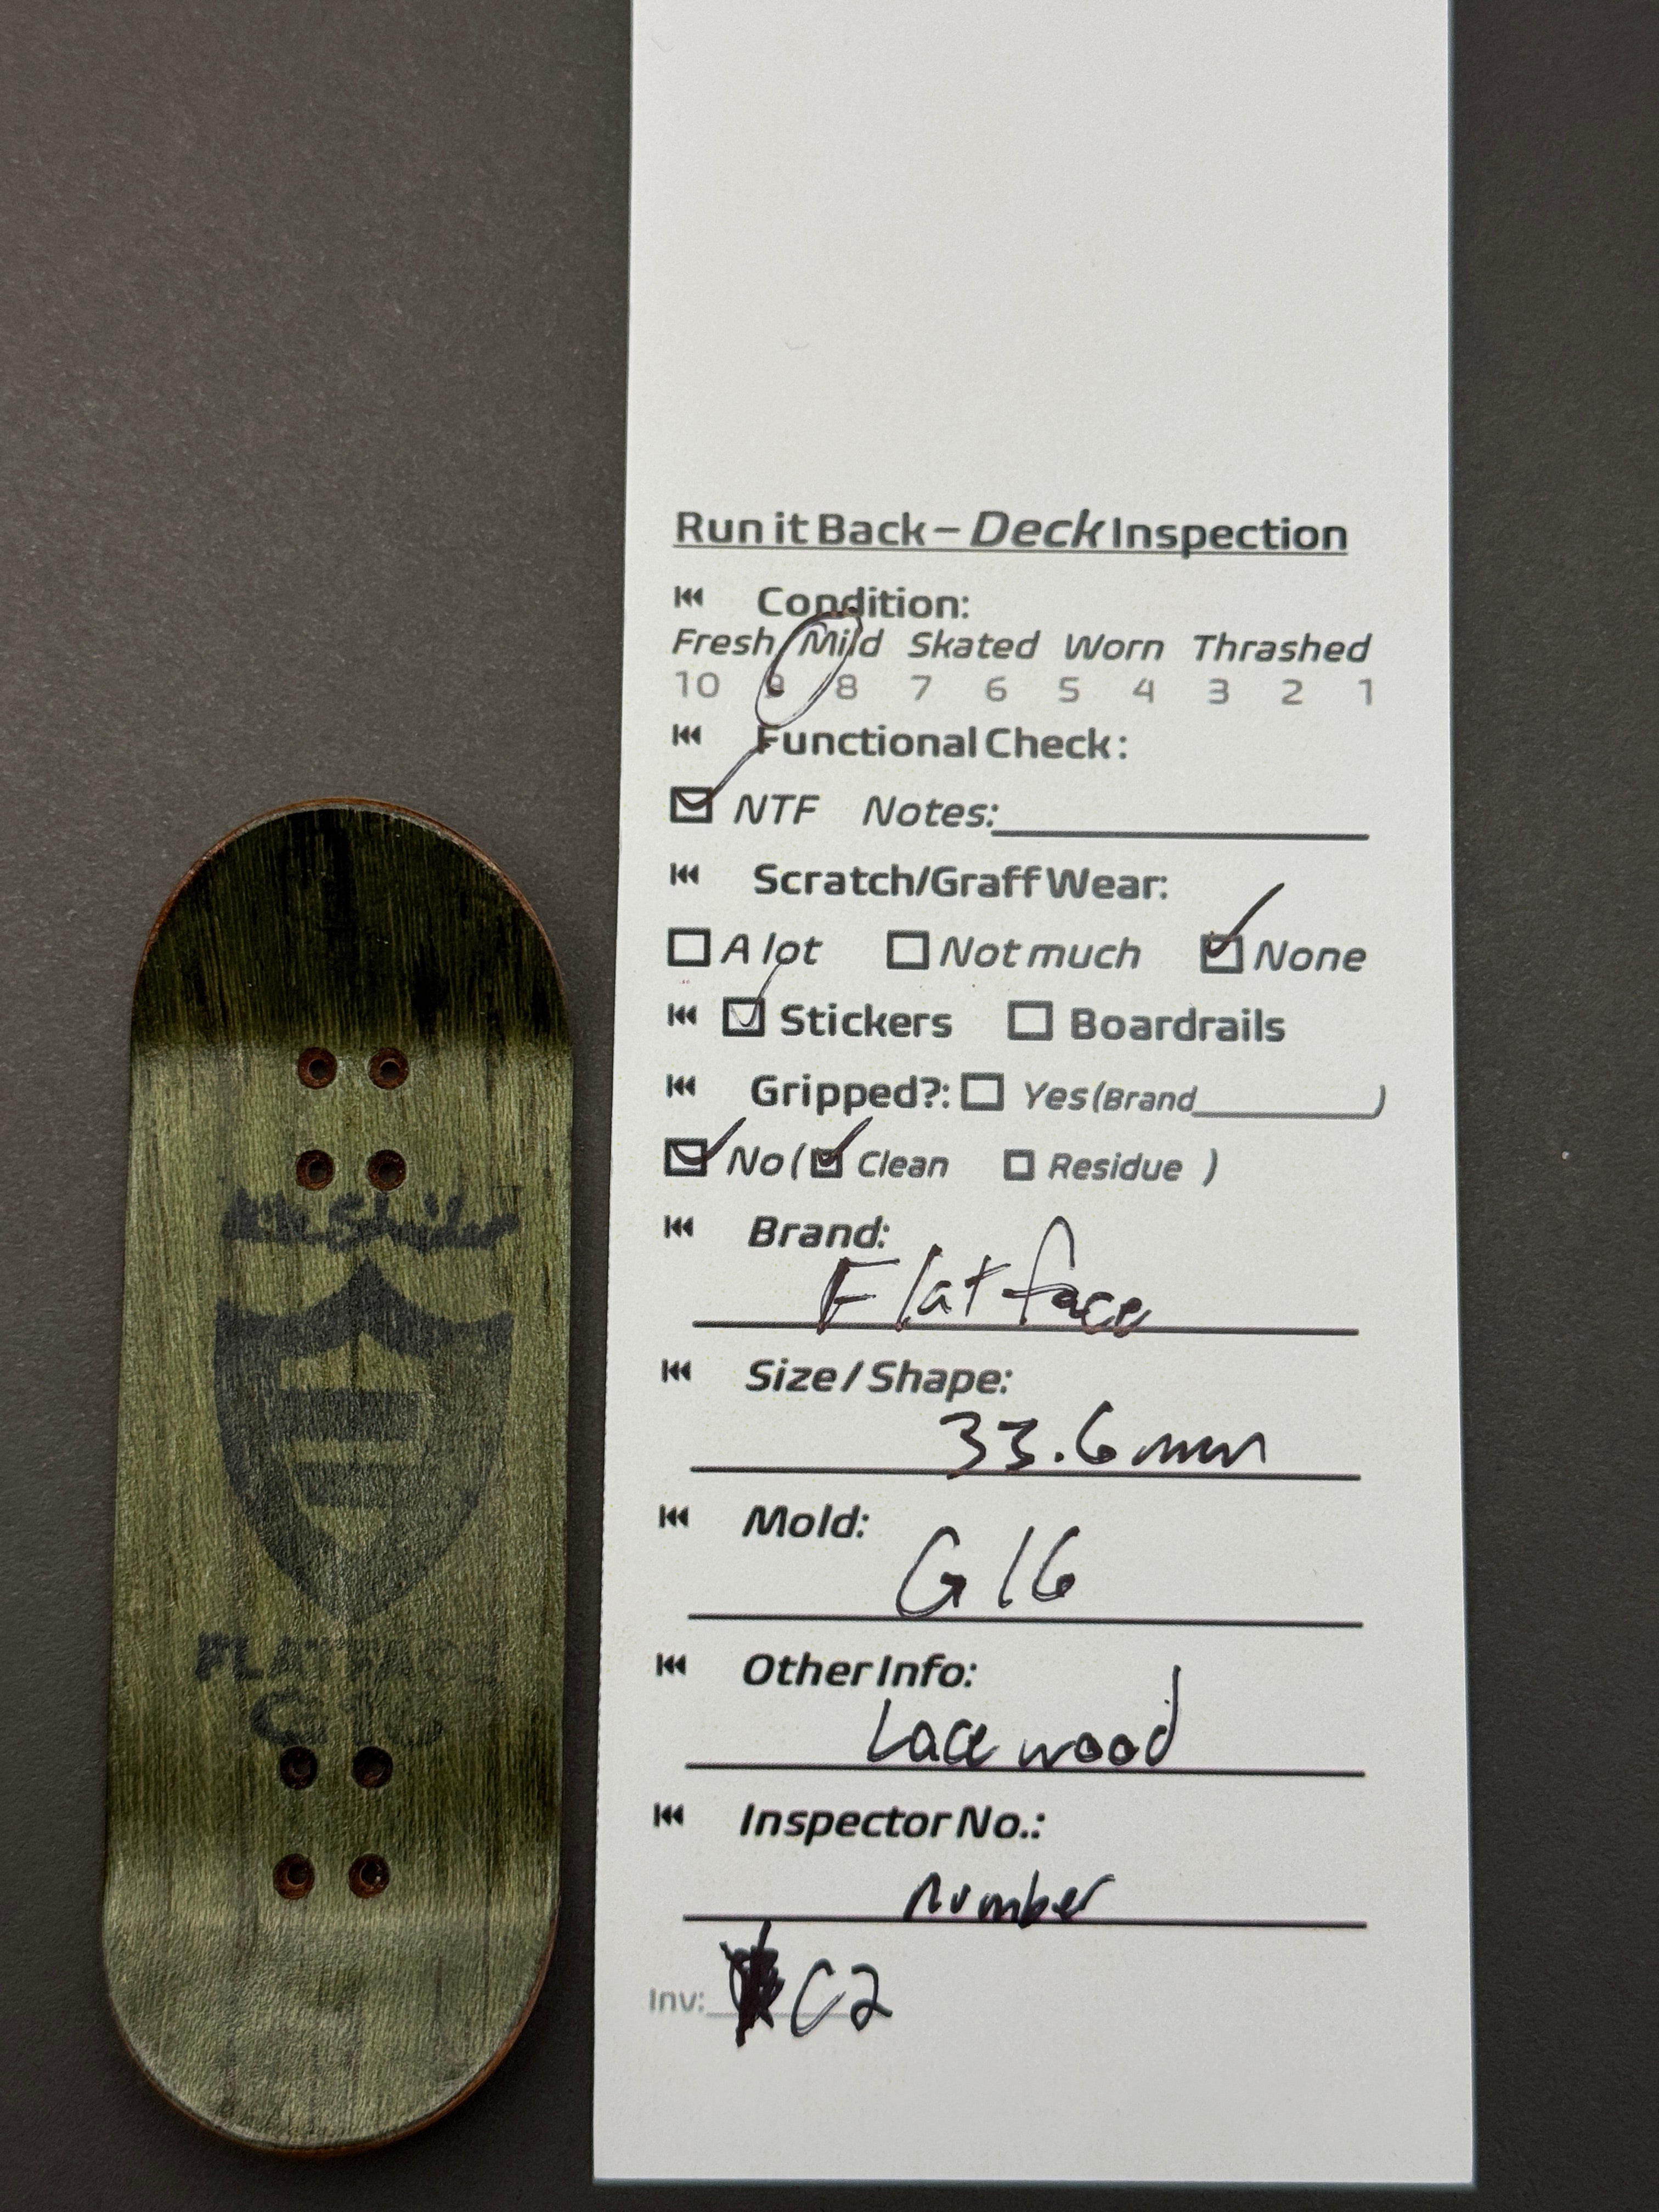 Run it Back – Deck Inspection
Condition:
Fresh Mild Skated Worn Thrashed
10 9 8 7 6 5 4 3 2 1
Functional Check:
NTF Notes:
Scratch/Graff Wear:
A lot Not much None
Stickers Boardrails
Gripped?: Yes (Brand )
No ( Clean Residue )
Brand:
Flatface
Size / Shape:
33.6mm
Mold:
G16
Other Info:
Lacewood
Inspector No.:
number
Inv: C2
FLATFACE
G16